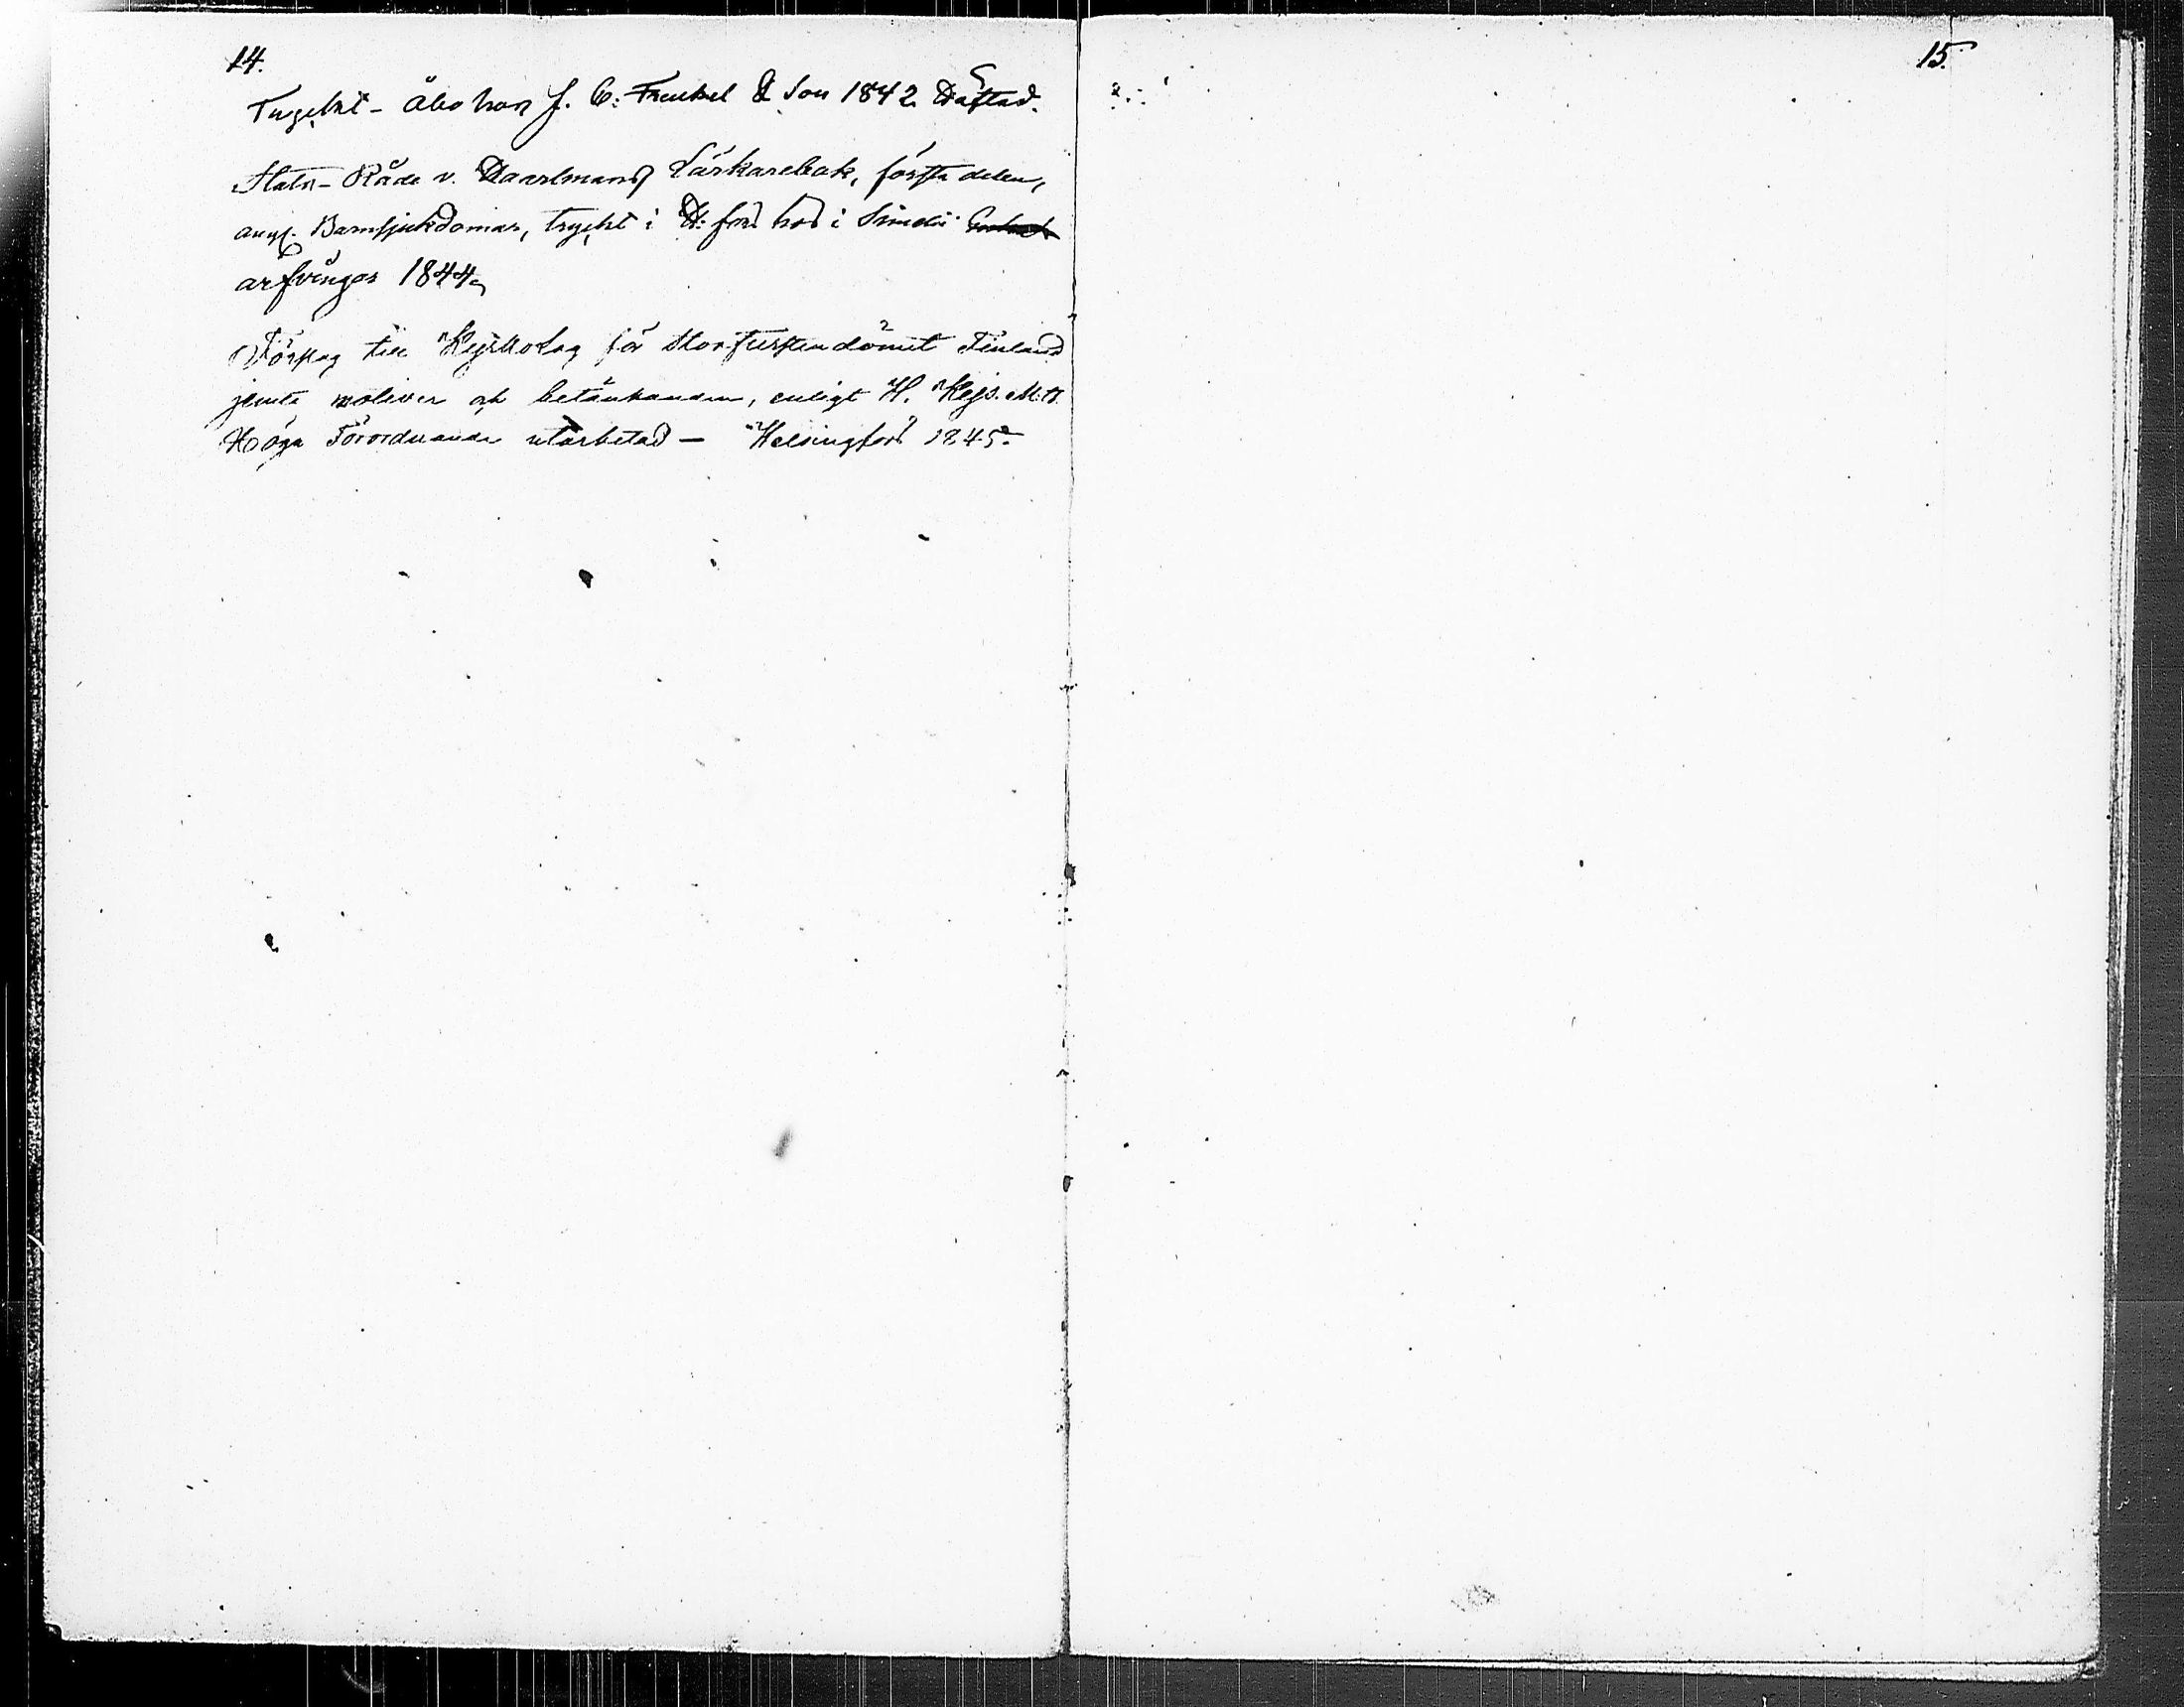 14.
Tryckt - Åbo hos J. C. Frenkel & Son 1842 Häftad.
Stats-Råde v. Haartmans Läkarebok, första delen,
ang. Barnsjukdomar, tryckt i H:fors hos i Simelii
arfvingar 1844,
Förslag till Kyrkolag för Storfurstendömet Finland
jemte motiver och betänkanden, enligt H. Kejs. M:ts
Höga Förordnande utarbetad — Helsingfors 1845.
15.